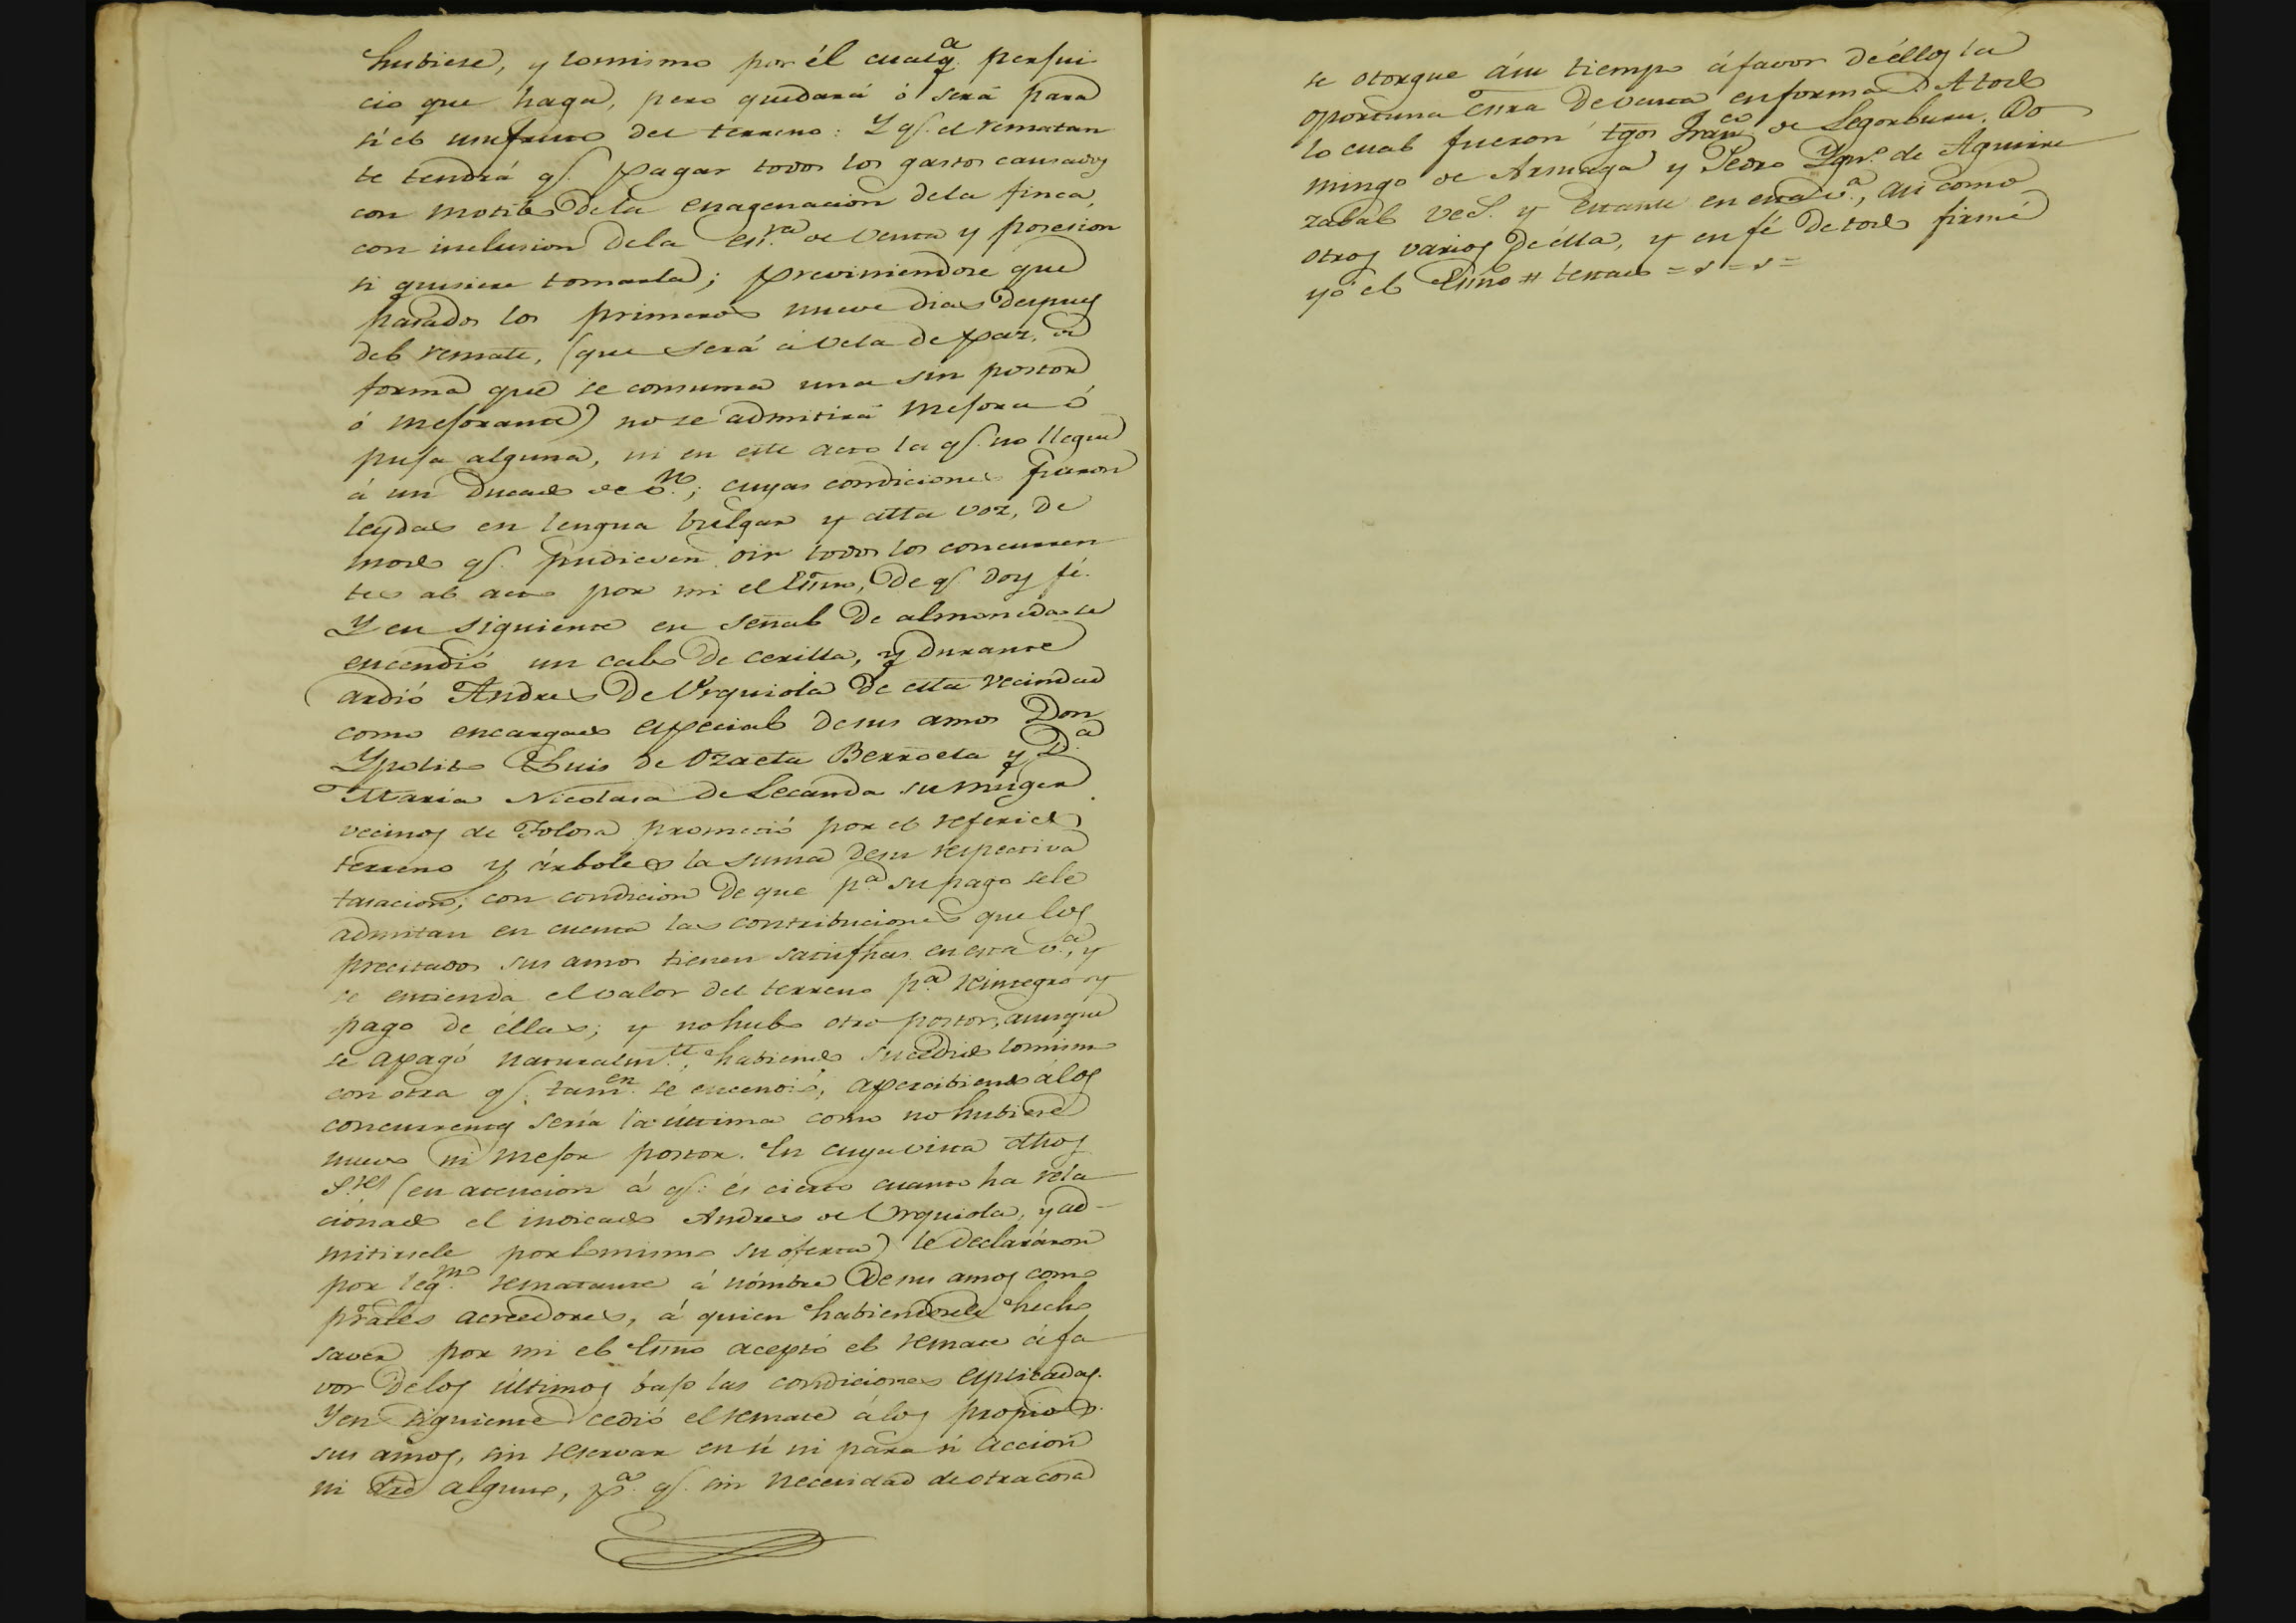 hubiese, y lo mismo por él cualq.a perjui
cio que haga, pero quedará ó será para
si el usufruto del terreno: Y q.e el rematan
te tendrá q.e pagar todos los gastos causados
con motibo dela enagenacion dela finca,
con inclusion dela es.ra de venta y posesion
si quisiere tomarla; previniendose que
pasados los primeros nueve dias despues
del remate, (que será á vela de par, en
forma que se consuma una sin postor
ó mejorante) no se admitirá mejora ó
puja alguna, ni en este acto la q.e no llegue
á un Ducado de v.n; cuyas condiciones fueron
leydas en lengua bulgar y alta voz, de
modo q.e pudiesen oir todos los concurren
tes al acto por mi el Esño, de q.e doy fé.
Y en siguiente en señal de almoneda se
encendió un cabo de cerilla, y durante
ardió Andres de Urquiola de esta vecindad
como encargado especial de sus amos Don
Ypolito Luis de Ozaeta Berroeta y D.a
Maria Nicolasa de Lecanda su muger
vecinos de Tolosa prometió por el referido
terreno y árboles la suma de su respectiva
tasacion; con condicion de que p.a su pago sele
admitan en cuenta las contribuciones que los
precitados sus amos tienen satisfhas en esta v.a, y
se entienda el valor del terreno p.a reintegro y
pago de éllas; y no hubo otro postor, aunque
se apagó naturalm.te, habiendo sucedido lo mismo
con otra q.e tam.en se encendió, apercibiendo á los
concurrentes sería la última como no hubiese
nuevo ni mejor postor. En cuya vista dhos
S.res (en atencion á q.e és cierto cuanto ha rela
cionado el indicado Andres de Urquiola, y ad-
mitirsele por lo mismo su oferta) le declaráron
por leg.mo rematante á nómbre de sus amos como
prâles acreedores, á quien habiendosele hecho
saver por mi el Esño aceptó el remate á fa
vor de los últimos bajo las condiciones esplicadas.
Y en siguiente cedió el remate á los propios
sus amos, sin reservar en sí ni para si accion
ni dro alguno, p.a q.e sin necesidad de otra cosa
se otorgue á su tiempo á favor de éllos la
oportuna esñra de venta en forma. A todo
lo cual fueron tgos Fran.co de Legorburu, Do
mingo de Azmaga y Pedro Ygn.o de Aguirre
zabal vec.s y estante en esta v.a, asi como
otros varios de élla, y en fé de todo firmé
yo el Esño # testado = s = s =